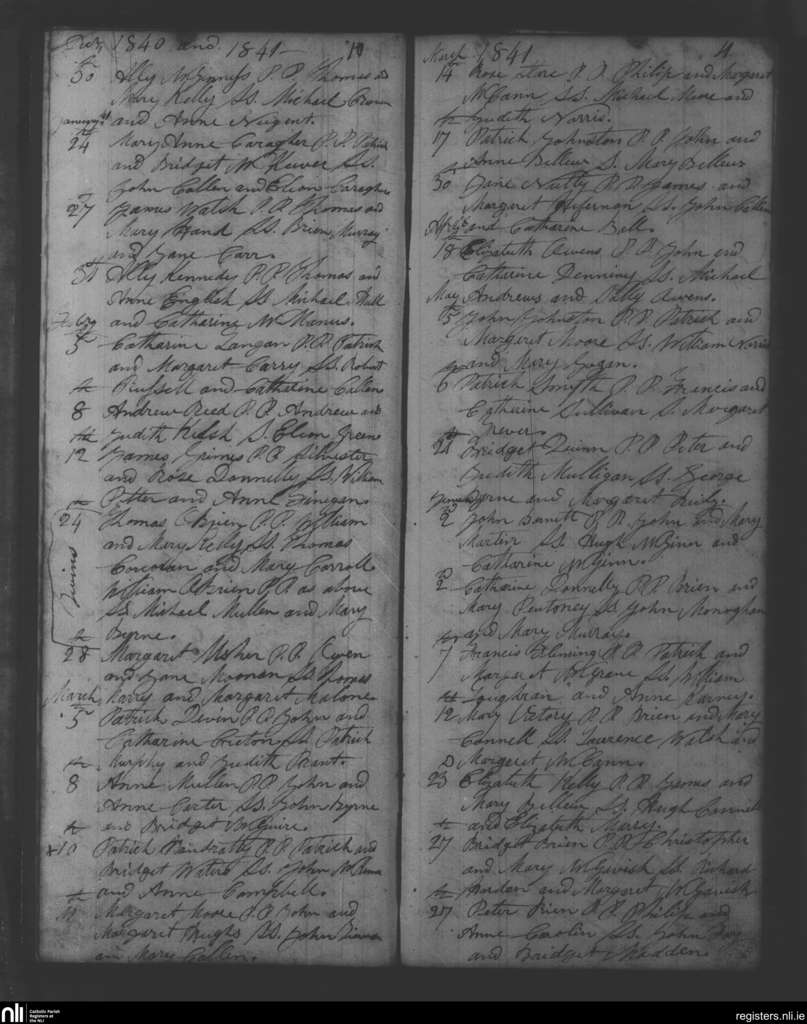 Dec 1840 and 1841 10
30 Ally McGinness P.P. Thomas and
Mary Kelly Ss. Michael
January and Anne Nugent.
24 Mary Anne Caragher P.P. Patrick
and Bridget Ss.
John Callen and Elion Caragher
27 James Walsh P.P. Thomas and
Mary Hand Ss. Brien Murray
and Jane Carr.
31 Ally Kennedy P.P. Thomas and
Anne English Ss Michael
and Catharine McManus.
5 Catharine Langan P.P. Patrick
and Margaret Carry Ss. Robert
Russell and Catherine Callen
8 Andrew Reed P.P. Andrew and
Judith Walsh S. Elion Greene
12 James Grimes P.P. Silvester
and Rose Donnelly Ss. William
Potter and Anne Finegan.
24 Thomas OBrien P.P. William
and Mary Kelly Ss. Thomas
Corcoran and Mary Carroll
twins
William OBrien P.P. as above
Ss. Michael Mullen and Mary
Byrne.
28 Margaret Maher P.P. Owen
and Jane Noonan Ss. Thomas
March Harry and Margaret Malone
5 Patrick Levin P.P. John and
Catharine Ss. Patrick
Murphy and Judith Grant.
8 Anne Mullen P.P. John and
Anne Carter Ss. John Byrne
and Bridget McGuire.
10 Patrick P.P. Patrick and
Bridget Waters Ss. John
and Anne Campbell.
11 Margaret Moore P.P. John and
Margaret Hughs Ss. John
and Mary Callen.
March 1841 11
14 Rose P.P. Philip and Margaret
McCann Ss. Michael Moore and
Judith Norris.
17 Patrick Johnston P.P. John and
Anne Bellew S. Mary Bellew
30 Jane Nulty P.P. James and
Margaret Hefernan Ss. John Callen
April and Catharine Bell.
18 Elizabeth Owens P.P. John and
Catharine Denneny Ss. Michael
May Andrews and Owens.
5 John Johnston P.P. Patrick and
Margaret Moore Ss. William Norris
and Mary Gogan.
6 Patrick Smyth P.P. Francis and
Catharine Sullivan S. Margaret
21 Bridget Quinn P.P. Peter and
Judith Mulligan Ss. George
Byrne and Margaret
2 John P.P. John and Mary
Martin Ss. Hugh McGinn and
Catharine McGinn.
2 Catharine Donnelly P.P. Brien and
Mary Ss John Monaghan
and Mary Murray.
7 Francis Fleming P.P. Patrick and
Margaret Ss. William
Loughran and Anne
12 Mary Victory P.P. Brien and Mary
Connell Ss Laurence Walsh and
Margaret McCann.
23 Elizabeth Kelly P.P. James and
Mary Bellew Ss. Hugh Connell
and Elizabeth Marry.
27 Bridget Brien P.P. Christopher
and Mary McGivish Ss. Richard
and Margaret McGavish
27 Peter Brien P.P. Philip and
Anne Carolin Ss. John
and Bridget Madden.
nli Catholic Parish
Registers at
the NLI
registers.nli.ie